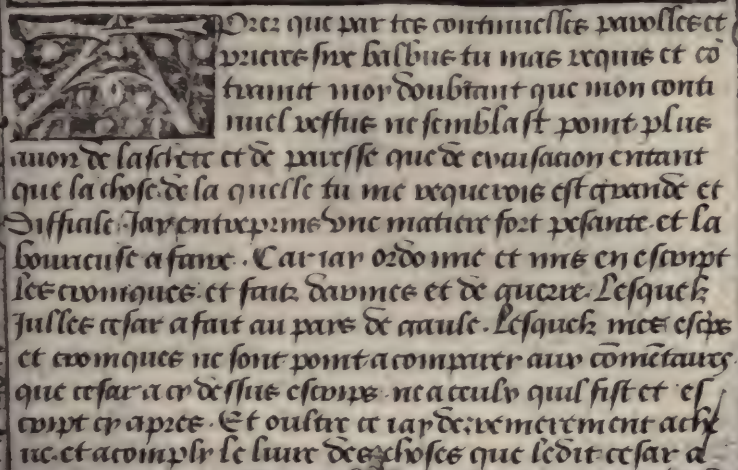 Porez que par tes continuelles parolles et
prieres sire balbus tu mas requis et cō
traint moy doubtant que mon conti
nuel reffus ne semblast point plus
auoir de lascete et de paresse que de excusacion entant
que la chose de la quelle tu me requerois est grande et
difficile. Jay entreprins vne matiere fort pesante et la
boureuse a faire. Car iay ordonne et mis en escript
les croniques et faitz darmes et de guerre. Lesquelz
Julles cesar a fait au pais de gaule. Lesquelz mes escps
et croniques ne sont point a comparer aux cōmētaires
que cesar a cy dessus escrips. ne a ceulx quil fist et es
cript cy apres. Et oultre ce iay derrenierement ache
ue. et acomply le liure des choses que ledit cesar a